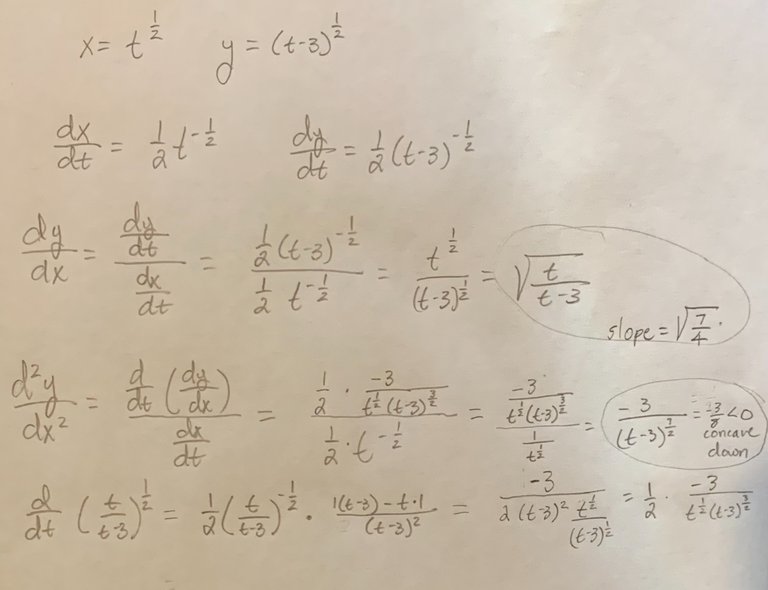 x = t^{1/2}    y = (t-3)^{1/2}
dx/dt = 1/2 t^{-1/2}    dy/dt = 1/2 (t-3)^{-1/2}
dy/dx = (dy/dt)/(dx/dt) = (1/2 (t-3)^{-1/2})/(1/2 t^{-1/2}) = t^{1/2}/(t-3)^{1/2} = √(t/(t-3))
slope = √(7/4).
d²y/dx² = (d/dt (dy/dx))/(dx/dt) = (1/2 · -3/(t^{1/2}(t-3)^{3/2}))/(1/2 · t^{-1/2}) = (-3/(t^{1/2}(t-3)^{3/2}))/(1/t^{1/2}) = -3/(t-3)^{3/2} = -3/8 < 0
concave
down
d/dt (t/(t-3))^{1/2} = 1/2 (t/(t-3))^{-1/2} · (1(t-3) - t·1)/(t-3)² = -3/(2(t-3)² t^{1/2}/(t-3)^{1/2}) = 1/2 · -3/(t^{1/2}(t-3)^{3/2})